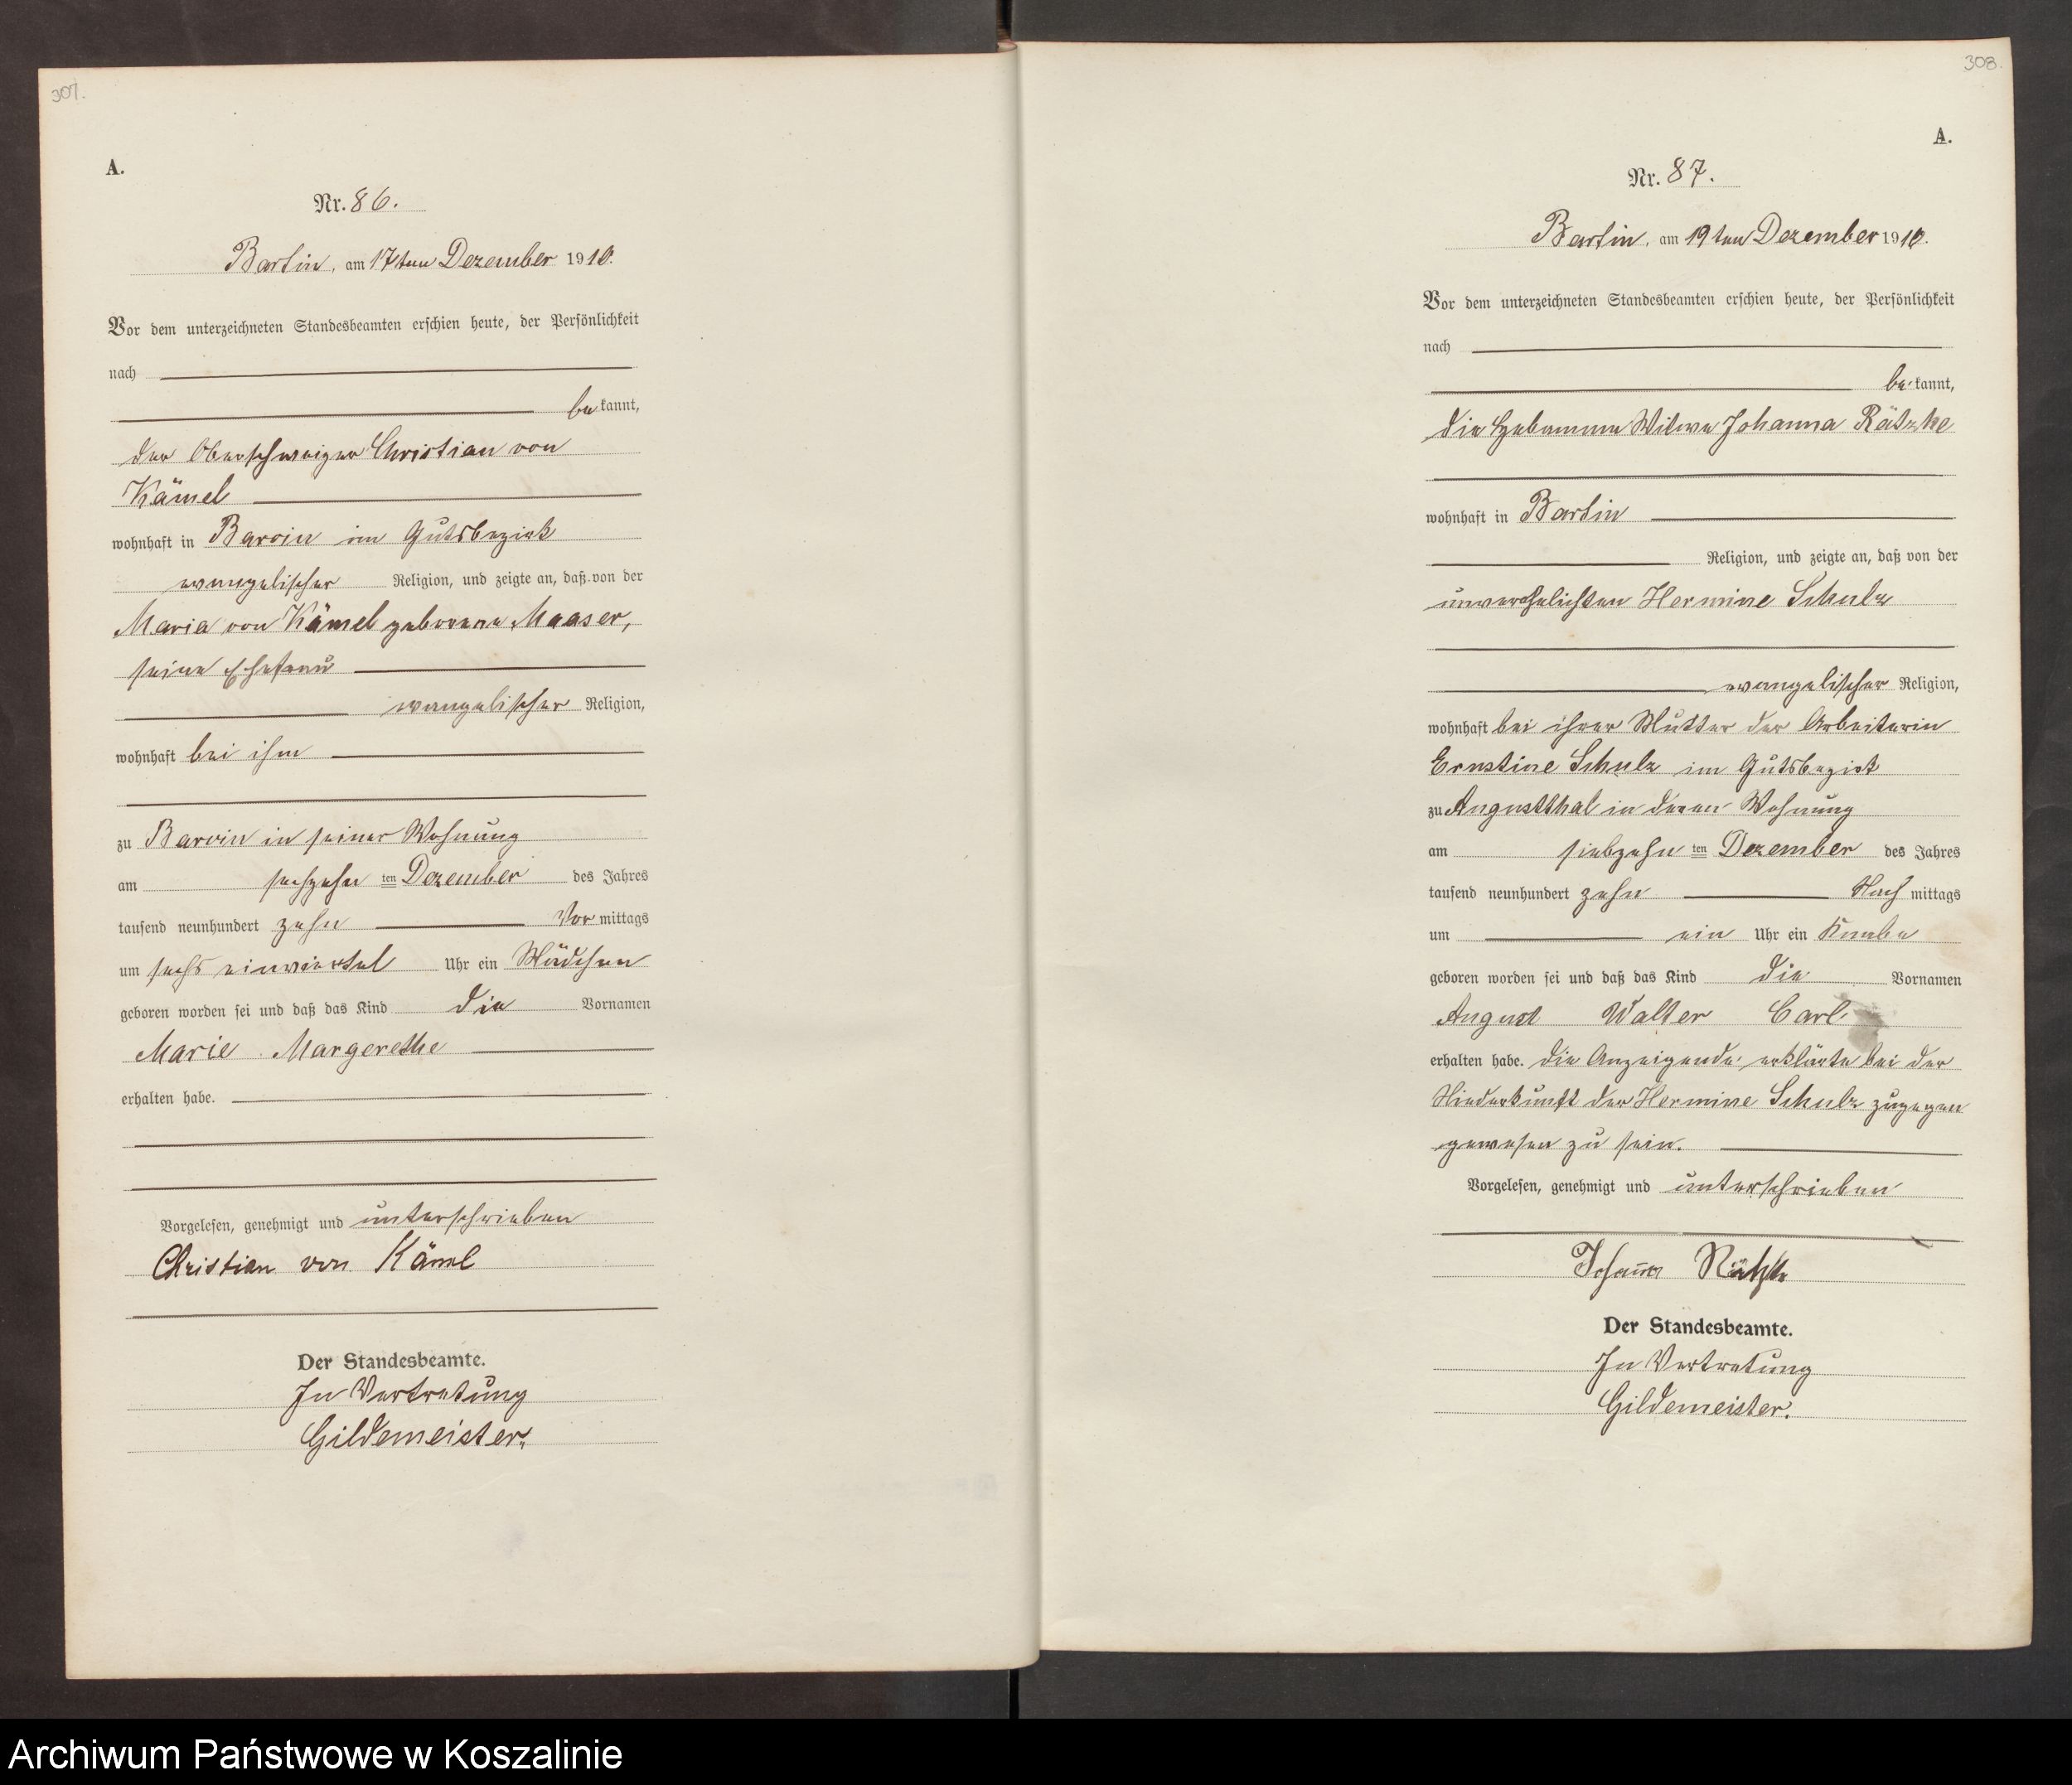 307.
A.
Nr. 86.
Bartin, am 17ten Dezember 1910.
Vor dem unterzeichneten Standesbeamten erschien heute, der Persönlichkeit
nach
bekannt,
der Oberschweizer Christian von
Kämel
wohnhaft in Barvin im Gutsbezirk
evangelischer Religion, und zeigte an, daß von der
Maria von Kämel geborene Maaser,
seine Ehefrau
evangelischer Religion,
wohnhaft bei ihm
zu Barvin in seiner Wohnung
am sechzehn ten Dezember des Jahres
tausend neunhundert zehn Vormittags
um sechs einviertel Uhr ein Mädchen
geboren worden sei und daß das Kind die Vornamen
Marie Margerethe
erhalten habe.
Vorgelesen, genehmigt und unterschrieben
Christian von Käml
Der Standesbeamte.
In Vertretung
Gildemeister.
308.
A.
Nr. 87.
Bartin, am 19ten Dezember 1910.
Vor dem unterzeichneten Standesbeamten erschien heute, der Persönlichkeit
nach
bekannt,
die Hebamme Witwe Johanna Rätzke
wohnhaft in Bartin
Religion, und zeigte an, daß von der
unverehelichten Hermine Schulz
evangelischer Religion,
wohnhaft bei ihrer Mutter der Arbeiterin
Ernstine Schulz im Gutsbezirk
zu Augustthal in deren Wohnung
am siebzehn ten Dezember des Jahres
tausend neunhundert zehn Nachmittags
um ein Uhr ein Knabe
geboren worden sei und daß das Kind die Vornamen
August Walter Carl
erhalten habe. Die Anzeigende erklärte bei der
Niederkunft der Hermine Schulz zugegen
gewesen zu sein.
Vorgelesen, genehmigt und unterschrieben
Johanna Rätzke
Der Standesbeamte.
In Vertretung
Gildemeister.
Archiwum Państwowe w Koszalinie